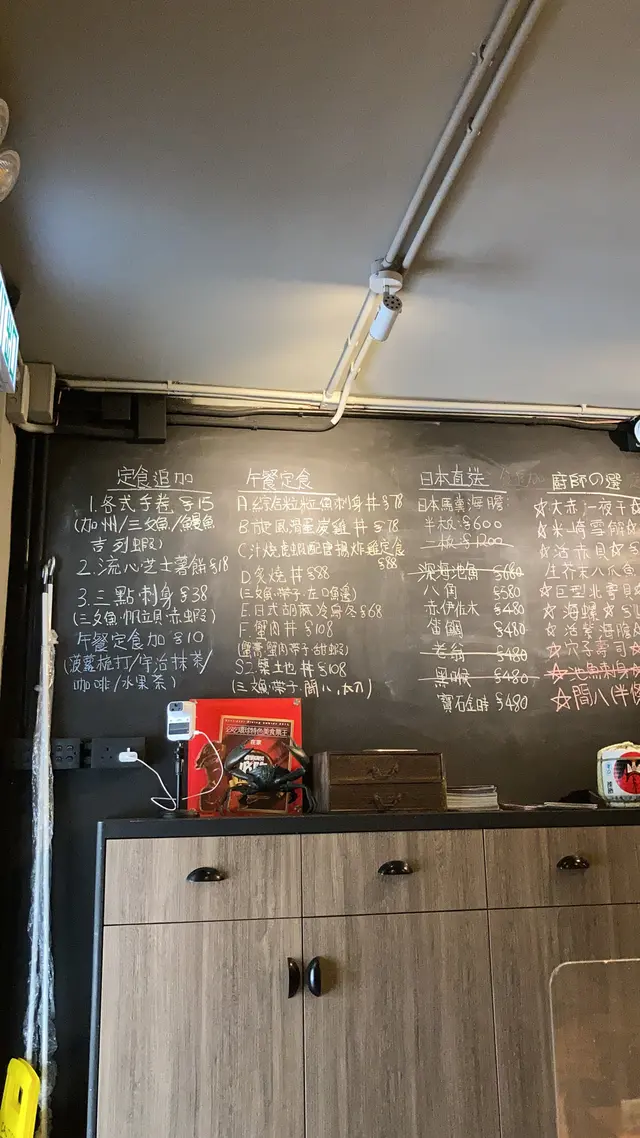 定食追加
1.各式手卷 $15
(加州/三文魚/鰻魚
吉列蝦)
2.流心芝士薯餅$18
3.三點刺身$38
(三文魚·帆立貝·赤蝦)
午餐定食加$10
(菠蘿梳打/宇治抹茶/
咖啡/水果茶)
午餐定食
A.綜合粒粒魚刺身丼$78
B.旋風滑蛋炭雞丼$78
C.汁燒虎蝦配唐揚炸雞定食
$88
D炙燒丼$88
(三文魚·帶子·左口魚邊)
E.日式胡麻冷烏冬$68
F.蟹肉丼$108
(蟹膏蟹肉帶子甜蝦)
(三文魚帶子
日本直送
日本馬糞海膽
半板$600
二板$1200
深海池魚$680
八角$580
赤伊佐木$480
笛鯛$480
老翁$480
黑喉$480
寶石金時$480
廚師の選
☆大赤
☆活赤貝
生芥末八爪魚
☆巨型北寄貝
☆海螺
☆穴子壽司
☆池魚刺身
☆間八(半